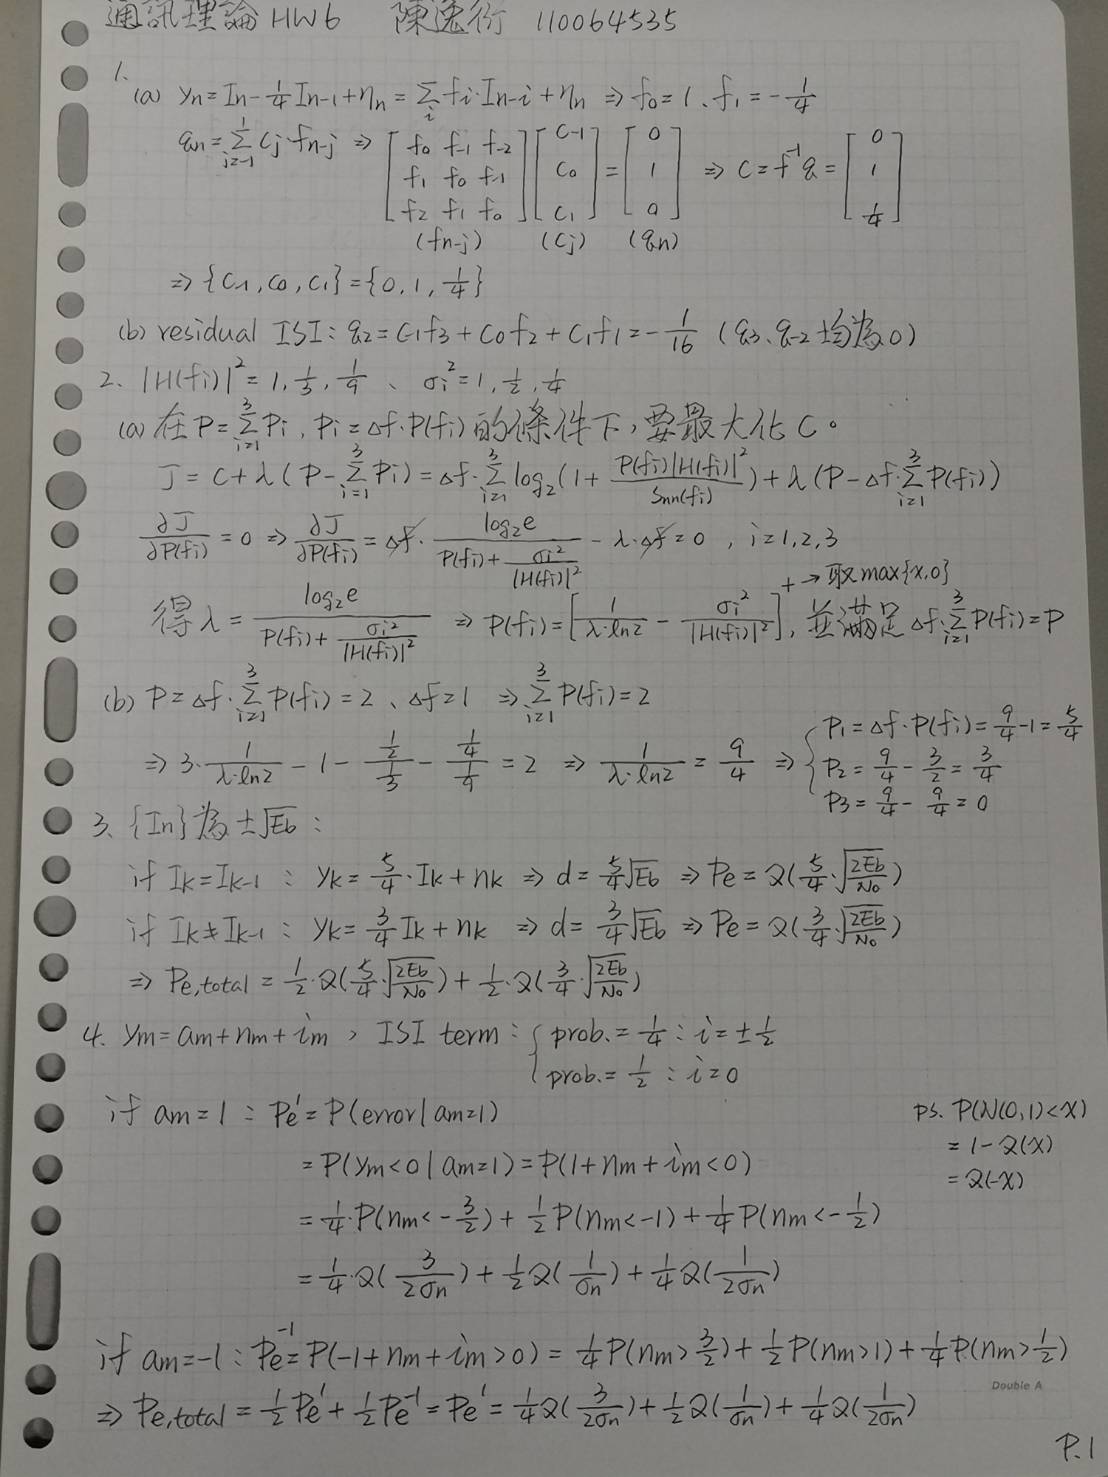 通訊理論 HW6 陳逸衍 110064535
1.
(a) yn = In - 1/4 In-1 + ηn = Σ_i fi·In-i + ηn ⇒ f0 = 1、f1 = -1/4
qn = Σ_{j=-1}^{1} cj·fn-j ⇒ [f0 f-1 f-2; f1 f0 f-1; f2 f1 f0] [c-1; c0; c1] = [0; 1; 0] ⇒ c = f^-1 q = [0; 1; 1/4]
(fn-j) (cj) (qn)
⇒ {c-1, c0, c1} = {0, 1, 1/4}
(b) residual ISI: q2 = c-1f3 + c0f2 + c1f1 = -1/16 (q3、q-2 均為 0)
2. |H(fi)|^2 = 1, 1/3, 1/9 、 σi^2 = 1, 1/2, 1/4
(a) 在 P = Σ_{i=1}^{3} Pi, Pi = Δf·P(fi) 的條件下,要最大化 C。
J = C + λ(P - Σ_{i=1}^{3} Pi) = Δf·Σ_{i=1}^{3} log2(1 + P(fi)|H(fi)|^2 / Snn(fi)) + λ(P - Δf·Σ_{i=1}^{3} P(fi))
∂J/∂P(fi) = 0 ⇒ ∂J/∂P(fi) = Δf· log2e / (P(fi) + σi^2/|H(fi)|^2) - λ·Δf = 0 , i = 1,2,3
得 λ = log2e / (P(fi) + σi^2/|H(fi)|^2) ⇒ P(fi) = [1/(λ·ln2) - σi^2/|H(fi)|^2]^+ → 取max{x,0} , 並滿足 Δf·Σ_{i=1}^{3} P(fi) = P
(b) P = Δf·Σ_{i=1}^{3} P(fi) = 2 、Δf = 1 ⇒ Σ_{i=1}^{3} P(fi) = 2
⇒ 3·1/(λ·ln2) - 1 - (1/2)/(1/3) - (1/4)/(1/9) = 2 ⇒ 1/(λ·ln2) = 9/4 ⇒ { P1 = Δf·P(fi) = 9/4 - 1 = 5/4
P2 = 9/4 - 3/2 = 3/4
P3 = 9/4 - 9/4 = 0
3. {In} 為 ±√Eb :
if Ik = Ik-1 : yk = 5/4·Ik + nk ⇒ d = 5/4 √Eb ⇒ Pe = Q(5/4·√(2Eb/No))
if Ik ≠ Ik-1 : yk = 3/4 Ik + nk ⇒ d = 3/4 √Eb ⇒ Pe = Q(3/4·√(2Eb/No))
⇒ Pe,total = 1/2·Q(5/4·√(2Eb/No)) + 1/2·Q(3/4·√(2Eb/No))
4. ym = am + nm + im , ISI term : { prob. = 1/4 : i = ±1/2
prob. = 1/2 : i = 0
if am = 1 : Pe^1 = P(error | am=1)
= P(ym<0 | am=1) = P(1 + nm + im < 0)
= 1/4·P(nm < -3/2) + 1/2 P(nm < -1) + 1/4 P(nm < -1/2)
= 1/4·Q(3/(2σn)) + 1/2 Q(1/σn) + 1/4 Q(1/(2σn))
ps. P(N(0,1)<x)
= 1 - Q(x)
= Q(-x)
if am = -1 : Pe^-1 = P(-1 + nm + im > 0) = 1/4 P(nm > 3/2) + 1/2 P(nm > 1) + 1/4 P(nm > 1/2)
Double A
⇒ Pe,total = 1/2 Pe^1 + 1/2 Pe^-1 = Pe^1 = 1/4 Q(3/(2σn)) + 1/2 Q(1/σn) + 1/4 Q(1/(2σn))
P.1